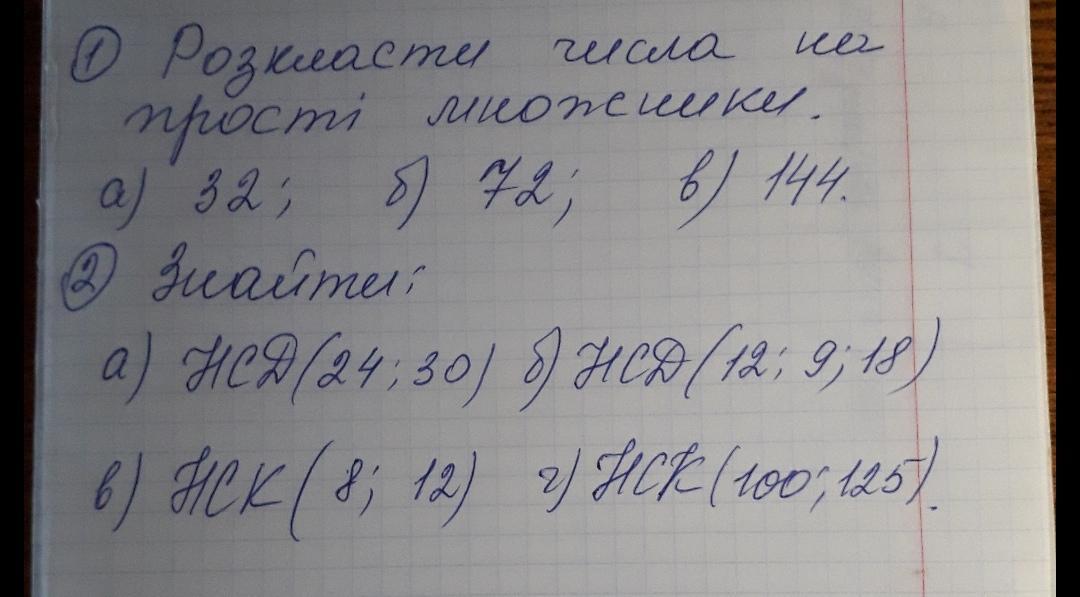 ① Розкласти числа на
прості множники.
а) 32; б) 72; в) 144.
② Знайти:
а) НСД(24; 30) б) НСД(12; 9; 18)
в) НСК(8; 12) г) НСК(100; 125).